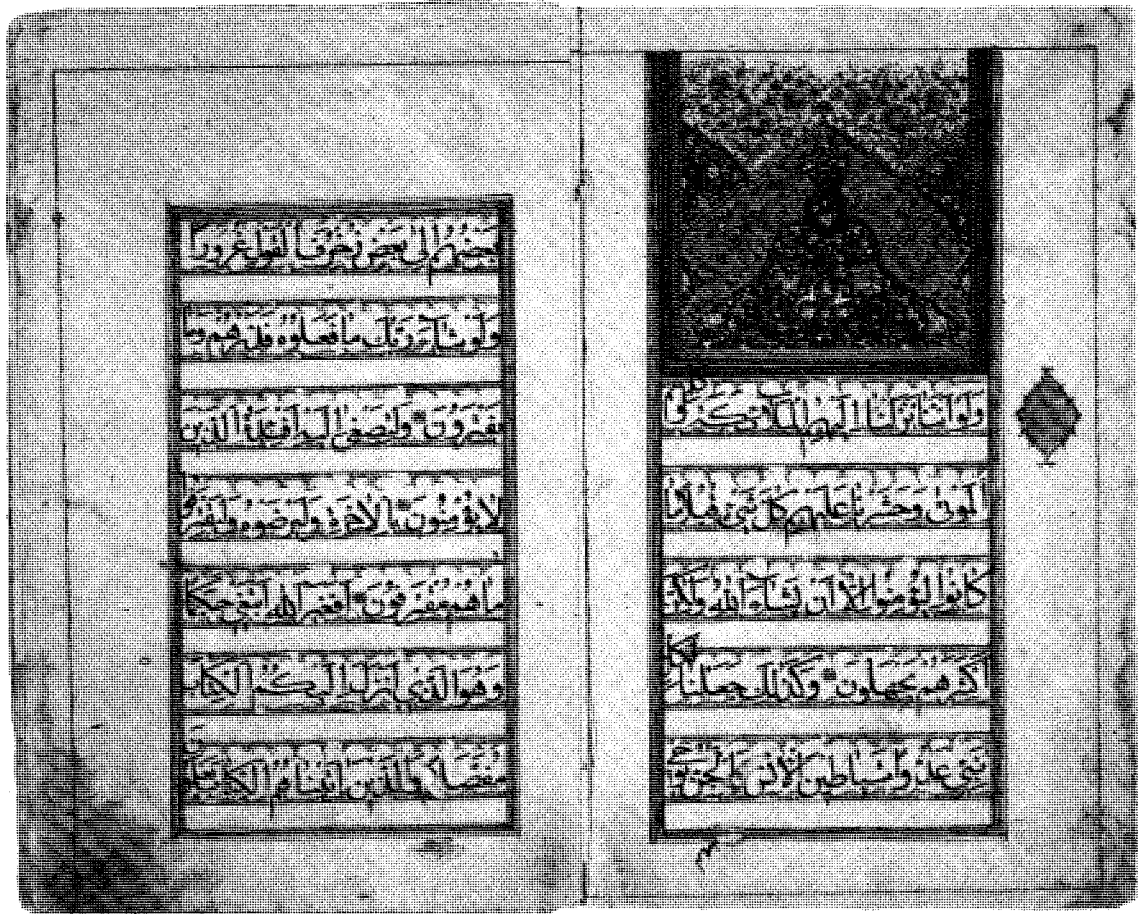 وَلَوْ أَنَّنَا نَزَّلْنَا إِلَيْهِمُ الْمَلَائِكَةَ وَكَلَّمَهُمُ
الْمَوْتَى وَحَشَرْنَا عَلَيْهِمْ كُلَّ شَيْءٍ قُبُلًا مَا
كَانُوا لِيُؤْمِنُوا إِلَّا أَنْ يَشَاءَ اللَّهُ وَلَكِنَّ
أَكْثَرَهُمْ يَجْهَلُونَ وَكَذَلِكَ جَعَلْنَا لِكُلِّ
نَبِيٍّ عَدُوًّا شَيَاطِينَ الْإِنْسِ وَالْجِنِّ يُوحِي
بَعْضُهُمْ إِلَى بَعْضٍ زُخْرُفَ الْقَوْلِ غُرُورًا
وَلَوْ شَاءَ رَبُّكَ مَا فَعَلُوهُ فَذَرْهُمْ وَمَا
يَفْتَرُونَ وَلِتَصْغَى إِلَيْهِ أَفْئِدَةُ الَّذِينَ
لَا يُؤْمِنُونَ بِالْآخِرَةِ وَلِيَرْضَوْهُ وَلِيَقْتَرِفُوا
مَا هُمْ مُقْتَرِفُونَ أَفَغَيْرَ اللَّهِ أَبْتَغِي حَكَمًا
وَهُوَ الَّذِي أَنْزَلَ إِلَيْكُمُ الْكِتَابَ
مُفَصَّلًا وَالَّذِينَ آتَيْنَاهُمُ الْكِتَابَ يَعْلَمُونَ